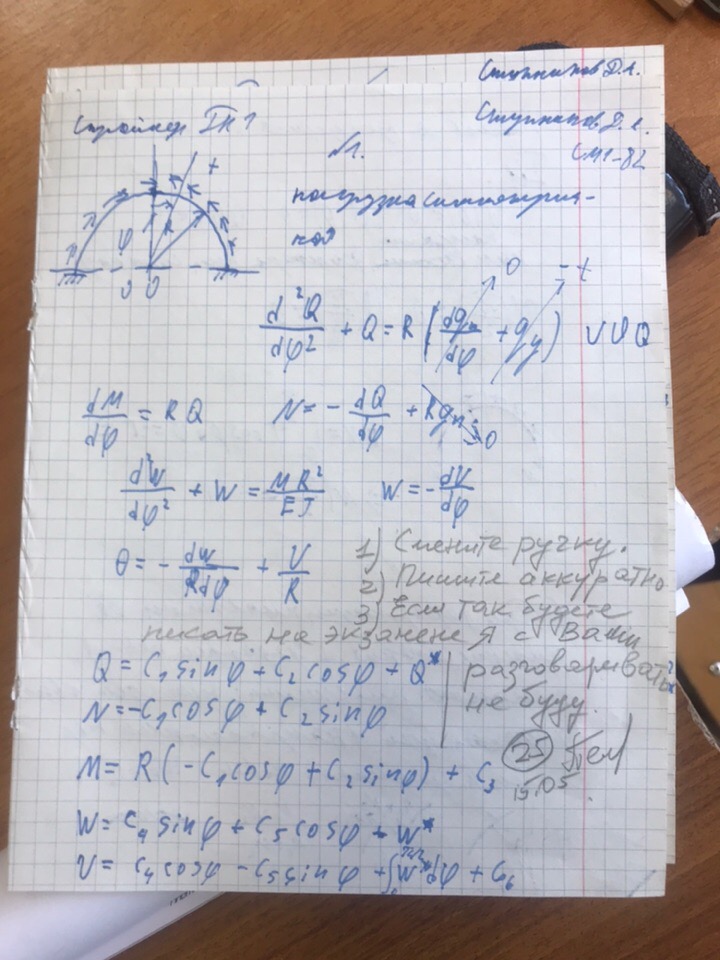 Ступников Д.А.
Строймех ДЗ 1
Ступников Д.А.
СМ1-82
№1.
t
φ
R
0
нагрузка симметрич-
ная
d²Q/dφ² + Q = R (dqₙ/dφ + q_y) ∪∪Q
0
-t
dM/dφ = RQ
N = - dQ/dφ + Rqₙ
0
d²w/dφ² + W = MR²/EJ
W = - dV/dφ
θ = - dw/Rdφ + V/R
1) Смените ручку.
2) Пишите аккуратно
3) Если так будете
писать на экзамене я с Вами
разговаривать
не буду.
Q = C₁sinφ + C₂cosφ + Q*
N = -C₁cosφ + C₂sinφ
M = R(-C₁cosφ + C₂sinφ) + C₃
25
15.05.
W = C₄sinφ + C₅cosφ + W*
V = C₄cosφ - C₅sinφ + ∫W*dφ + C₆